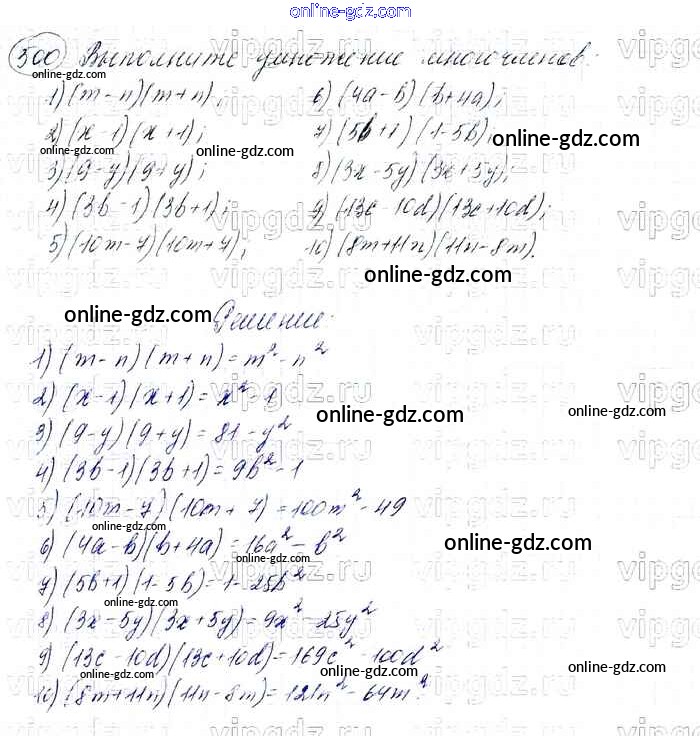 online-gdz.com
500 Выполните умножение многочленов:
online-gdz.com
1) (m - n)(m + n); 6) (4a - b)(b + 4a);
online-gdz.com online-gdz.com
2) (x - 1)(x + 1); 7) (5b + 1)(1 - 5b); online-gdz.com
online-gdz.com online-gdz.com
3) (9 - y)(9 + y); 8) (3x - 5y)(3x + 5y);
4) (3b - 1)(3b + 1); 9) (13c - 10d)(13c + 10d);
5) (10m - 7)(10m + 7); 10) (8m + 11n)(11n - 8m).
online-gdz.com
online-gdz.com Решение:
1) (m - n)(m + n) = m² - n²
2) (x - 1)(x + 1) = x² - 1
online-gdz.com online-gdz.com
3) (9 - y)(9 + y) = 81 - y²
4) (3b - 1)(3b + 1) = 9b² - 1
5) (10m - 7)(10m + 7) = 100m² - 49
online-gdz.com
6) (4a - b)(b + 4a) = 16a² - b² online-gdz.com
7) (5b + 1)(1 - 5b) = 1 - 25b²
online-gdz.com
8) (3x - 5y)(3x + 5y) = 9x² - 25y²
9) (13c - 10d)(13c + 10d) = 169c² - 100d²
online-gdz.com online-gdz.com online-gdz.com
10) (8m + 11n)(11n - 8m) = 121n² - 64m²
vipgdz.ru